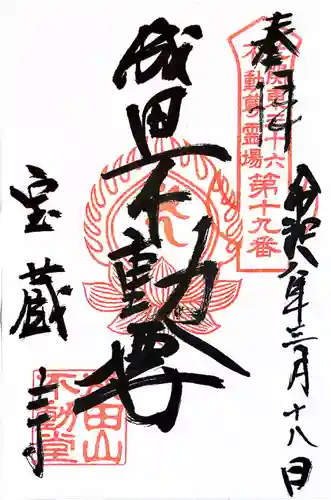 奉拝
令和八年三月十八日
北関東三十六
不動尊霊場
第十九番
成田山不動尊
宝蔵寺
成田山
不動堂